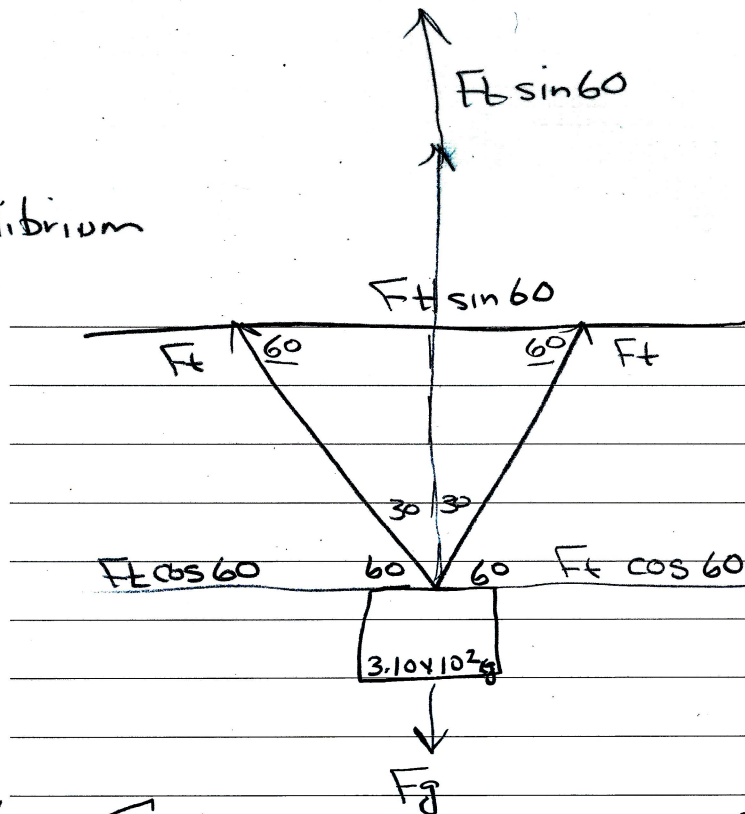 Ft sin60
librium
Ft sin60
Ft 60 60 Ft
30 30
Ft cos60 60 60 Ft cos 60
3.10x10²g
Fg